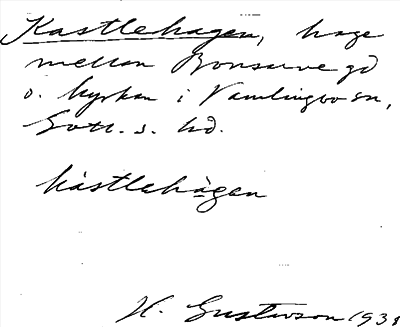 Kastlehagen, hage
mellan Bonsarve gd
o. kyrkan i Vamlingbo sn,
Gotl. s. hd.
kástlehàgen
H. Gustavson 1938